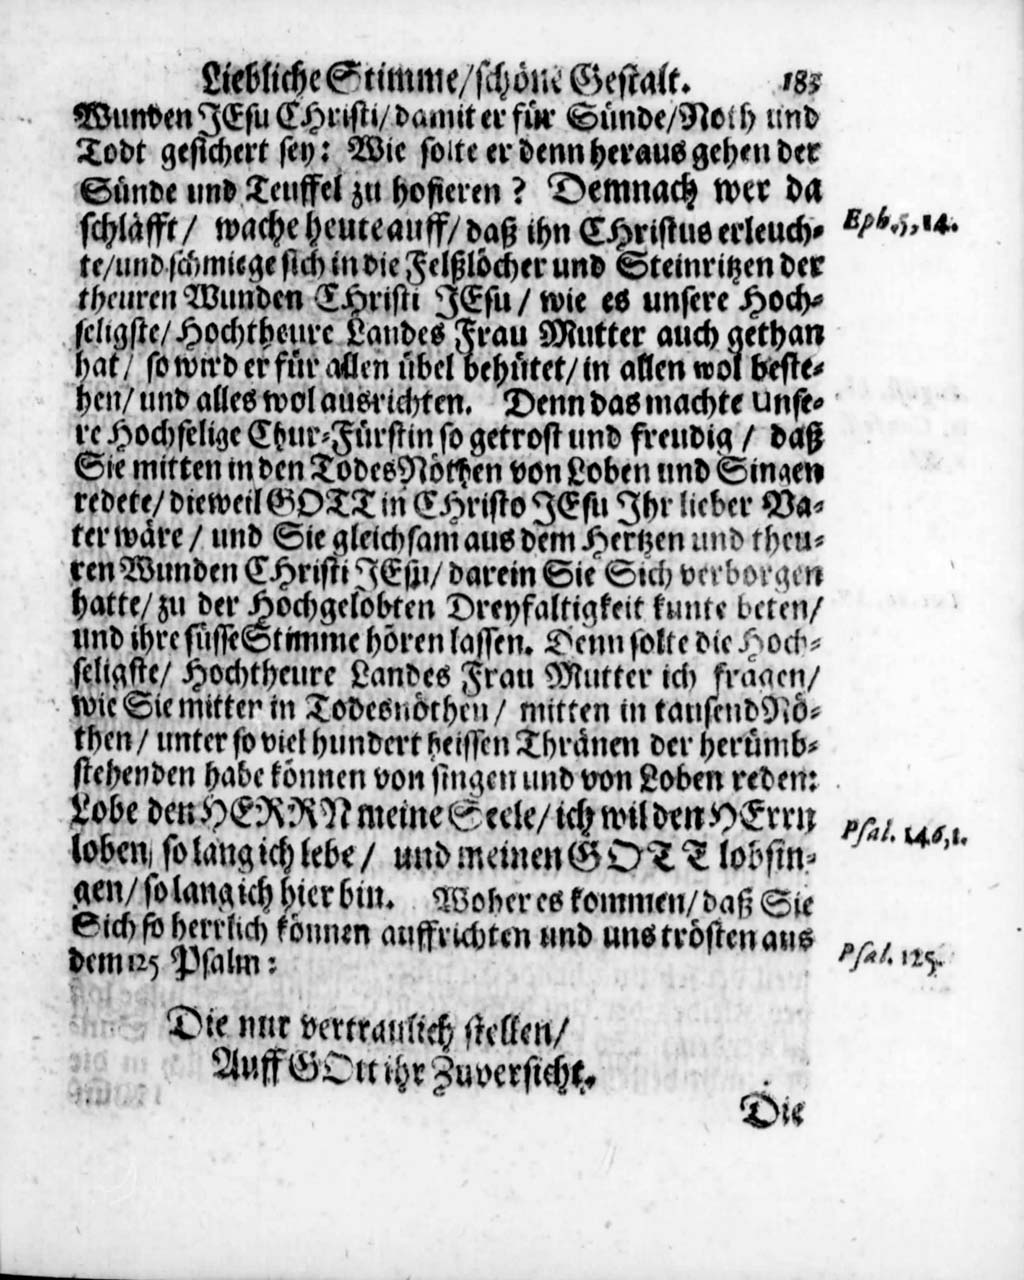 Liebliche Stimme/schöne Gestalt. 183
Wunden JEsu CHristi/damit er für Sünde/Noth und
Todt gesichert sey: Wie solte er denn heraus gehen der
Sünde und Teuffel zu hofieren? Demnach wer da
schläfft/ wache heute auff/ daß ihn CHristus erleuch-
te/und schmiege sich in die Felßlöcher und Steinritzen der
theuren Wunden CHristi JEsu / wie es unsere Hoch-
seligste/ Hochtheure Landes Frau Mutter auch gethan
hat/ so wird er für allen übel behütet/ in allen wol beste-
hen/ und alles wol ausrichten. Denn das machte unse-
re Hochselige Chur-Fürstin so getrost und freudig / daß
Sie mitten in den TodesNöthen von Loben und Singen
redete/ dieweil GOTT in CHristo JEsu Ihr lieber Va-
ter wäre / und Sie gleichsam aus dem Hertzen und theu-
ren Wunden CHristi JEsu/ darein Sie Sich verborgen
hatte/ zu der Hochgelobten Dreyfaltigkeit kunte beten/
und ihre süsse Stimme hören lassen. Denn solte die Hoch-
seligste/ Hochtheure Landes Frau Mutter ich fragen/
wie Sie mitten in Todesnöthen/ mitten in tausend Nö-
then/ unter so viel hundert heissen Thränen der herümb-
stehenden habe können von singen und von Loben reden:
Lobe den HERRN meine Seele/ ich wil den HErrn
loben/ so lang ich lebe / und meinen GOTT lobsin-
gen/ so lang ich hier bin. Woher es kommen/ daß Sie
Sich so herrlich können auffrichten und uns trösten aus
dem 125 Psalm:
Die nur vertraulich stellen/
Auff GOtt ihr Zuversicht.
Die
Eph. 5, 14.
Psal. 146, 1.
Psal. 125.